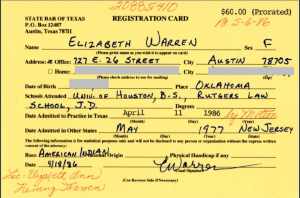 20885410
STATE BAR OF TEXAS
P.O. Box 12487
Austin, Texas 78711
REGISTRATION CARD
$60.00 (Prorated)
Name ELIZABETH WARREN Sex F
(Please print name as you wish it to appear on card)
Address Office: 727 E. 26 STREET City AUSTIN 78705
Home: City
(Please check address to use for mailing)
Date of Birth Place OKLAHOMA
Schools Attended UNIV. OF HOUSTON, B.S., RUTGERS LAW
SCHOOL, J.D.
Date Admitted to Practice in Texas April 11 1986
Date Admitted to Other States MAY 1977 NEW JERSEY
The following information is for statistical purposes only and will not be disclosed to any person or organization without the express written consent of the attorney.
Race: AMERICAN INDIAN Physical Handicap if any
Date 4/18/86 EWarren
(Use Reverse Side if Necessary)